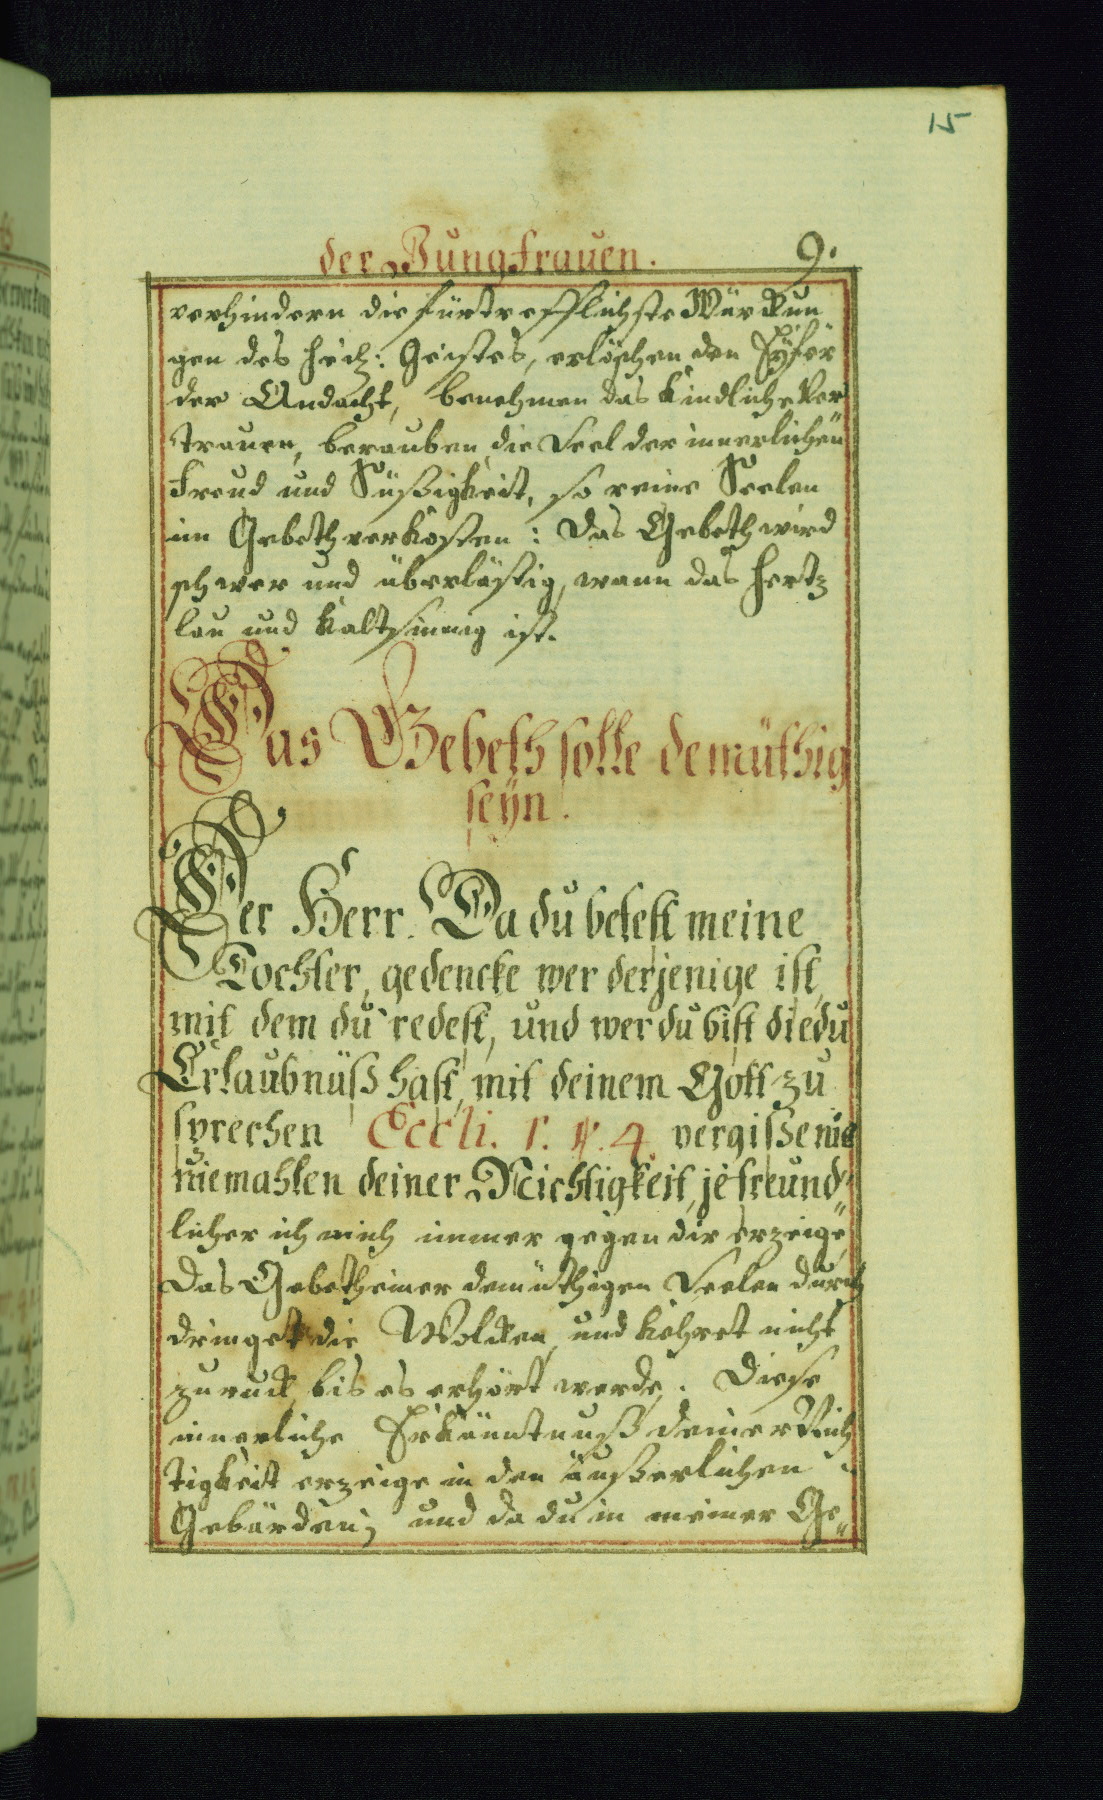 15
der Jungfrauen. 9.
verhindern die fürtrefflichste Würckun
gen des heil: Geistes, erlöschen den Eyfer
der Andacht, benehmen das Kindliche Ver
trauen, berauben die Seel der innerlichen
Freud und Süßigkeit, so reine Seelen
im Gebeth verkosten: Das Gebeth wird
schwer und überlästig, wann das Hertz
lau und kaltsinnig ist.
Das Gebeth solle demüthig
seyn.
Der Herr. Da du betest meine
Tochter, gedencke wer derjenige ist,
mit dem du redest, und wer du bist die du
Erlaubnüß hast, mit deinem Gott zu
sprechen Eccli. 1. ℣. 4. vergiße nie
niemahlen deiner Nichtigkeit, je freund„
licher ich mich immer gegen dir erzeige,
Das Gebeth einer demüthigen Seelen durch
dringet die Wolcken, und kehret nicht
zuruck, bis es erhört werde. Diese
innerliche Erkäuntnuß deiner Nich
tigkeit erzeige in den äußerlichen
Gebärden; und da du in meiner Ge„